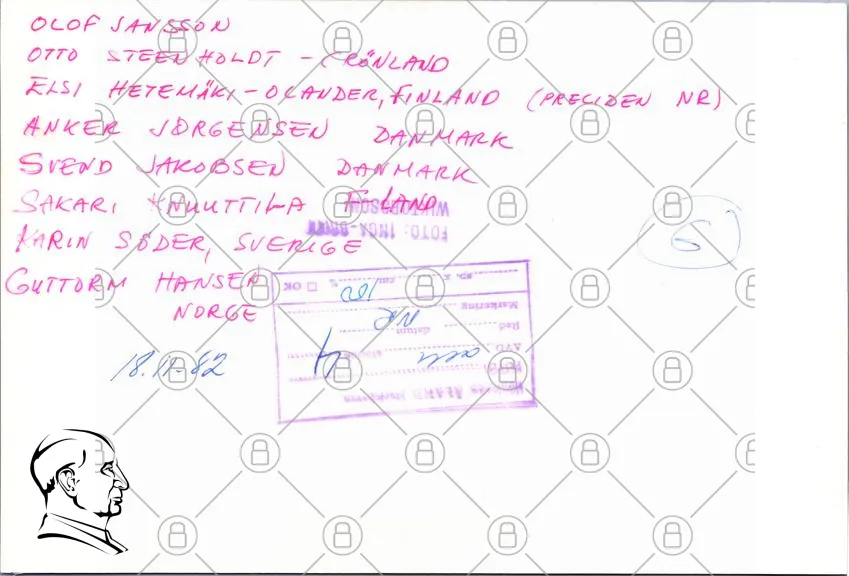 OLOF JANSSON
OTTO STEENHOLDT - GRÖNLAND
ELSI HETEMÄKI-OLANDER, FINLAND (PRECIDEN NR)
ANKER JØRGENSEN DANMARK
SVEND JAKOBSEN DANMARK
SAKARI KNUUTTILA
KARIN SÖDER, SVERIGE
GUTTORM HANSEN
NORGE
FOTO: INGA-BRITT
WIKTORSSON
18.11.82
ÅLAND
AVD
4
Red datum NR
Markering
100 % OK